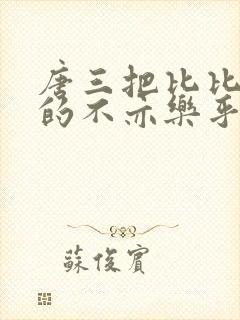 唐三把比比
的不亦樂乎
蘇俊賓